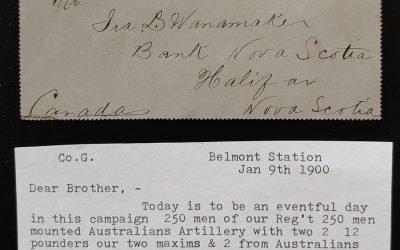 Mr.
Ira B Wanamaker
Bank Nova Scotia
Halifax
Canada Nova Scotia
Co.G. Belmont Station
Jan 9th 1900
Dear Brother, -
Today is to be an eventful day
in this campaign 250 men of our Reg't 250 men
mounted Australians Artillery with two 2 12
pounders our two maxims & 2 from Australians